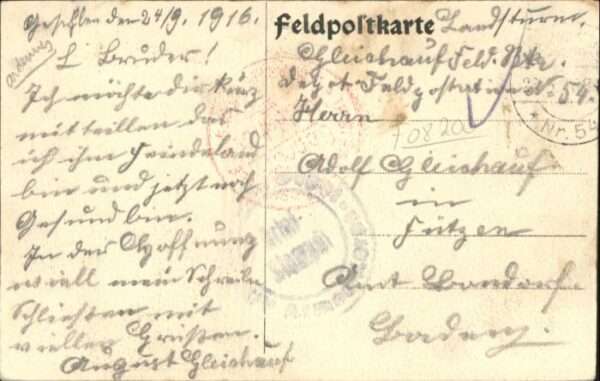 Geschben den 24/9. 1916.
L Bruder!
Ich möchte dir kurz
mitteillen das
ich ihm Feindeland
bin und jetzt noch
Gesund bin.
In der Hoffnung
will mein Schreiben
Schliesten mit
vieller Grüsten.
August Gleichauf
Feldpostkarte Landsturm.
Gleichauf Feld.
Depot Feldpostation No 54.
Herrn
Adolf Gleichauf
in
Fützen
Amt Bondorf.
Baden.
Nr. 54